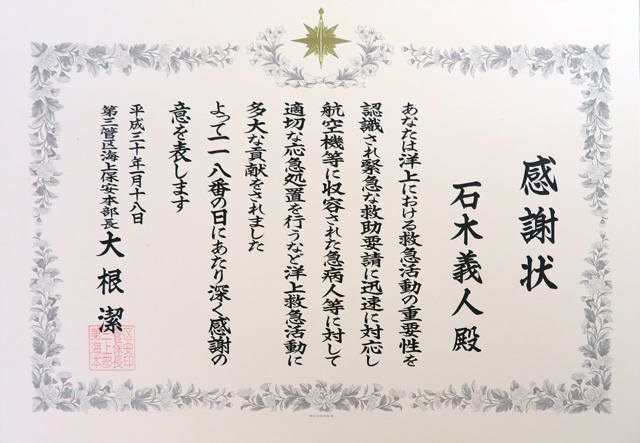 感謝状
石木義人殿
あなたは洋上における救急活動の重要性を
認識され緊急な救助要請に迅速に対応し
航空機等に収容された急病人等に対して
適切な応急処置を行うなど洋上救急活動に
多大な貢献をされました
よって一一八番の日にあたり深く感謝の
意を表します
平成三十年一月十八日
第三管区海上保安本部長 大根潔
区安印
管保長
三上部
第海本